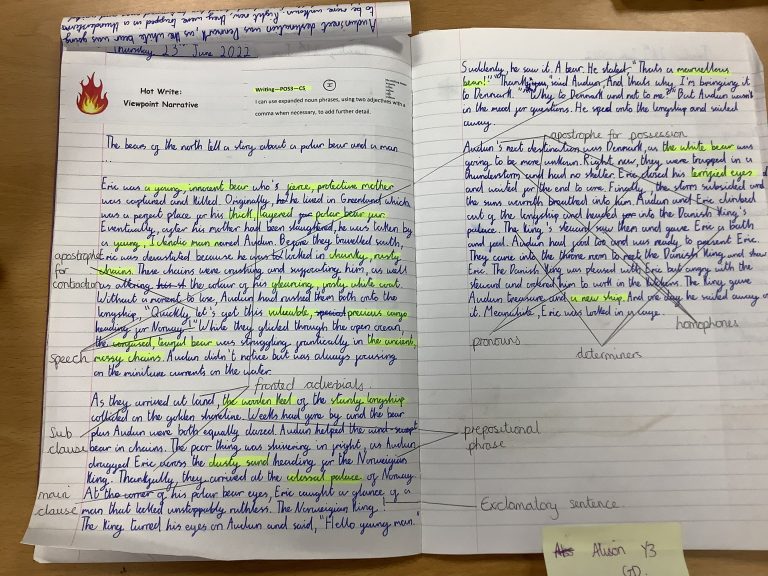 Audun's next destination was Denmark, as the white bear was going
to be more unkown. Right now, they were trapped in a thunderstorm
Thursday 23rd June 2022
Hot Write:
Viewpoint Narrative
Writing—POS3—CS
I can use expanded noun phrases, using two adjectives with a
comma when necessary, to add further detail.
The bears of the north tell a story about a polar bear and a man
...
Eric was a young, innocent bear who's fierce, protective mother
was captured and killed. Originally, he lived in Greenland which
was a perfect place for his thick, layered polar bear fur.
Eventually, after his mother had been slaughtered, he was taken by
a young, Icelandic man named Audun. Before they travelled south,
Eric was devastated because he was locked in chunky, rusty
chains. These chains were crushing and suffocating him, as well
as altering the colour of his gleaming, frosty white coat.
Without a moment to lose, Audun had rushed them both onto the
longship, "Quickly let's get this valuable, special precious cargo
heading for Norway!" While they glided through the open ocean,
the confused, tearful bear was struggling frantically in the ancient,
messy chains. Audun didn't notice but was always focusing
on the miniture currents on the water.
As they arrived at land, the wooden keel of the sturdy longship
collided on the golden shoreline. Weeks had gone by and the bear
plus Audun were both equally dazed. Audun helped the
bear in chains. The poor thing was shivering in fright, as Audun
dragged Eric across the dusty sand heading for the Norweigian
King. Thankfully, they arrived at the colossal palace of Norway.
At the corner of his polar bear eyes, Eric caught a glance of a
man that looked unstoppably ruthless. The Norweigian King!
The King turned his eyes on Audun and said, "Hello young man."
apostrophe
for
contraction
speech
fronted adverbials
Sub
clause
main
clause
Suddenly, he saw it. A bear. He stated, "Thats a marvellous
bear!" "Thank you," said Audun, And thats why I'm bringing it
to Denmark." "Why to Denmark and not to me?" But Audun wasn't
in the mood for questions. He sped onto the longship and sailed
away.
apostrophe for possession
Audun's next destination was Denmark, as the white bear was
going to be more unkown. Right now, they were trapped in a
thunderstorm and had no shelter. Eric closed his terrified eyes
and waited for the end to come. Finally, the storm subsided and
the suns warmth breathed into him. Audun and Eric climbed
out of the longship and headed for into the Danish King's
palace. The King's steward saw them and gave Eric a bath
and food. Audun had food too and was ready to present Eric.
They came into the throne room to meet the Danish King and show
Eric. The Danish King was pleased with Eric but angry with the
steward and ordered him to work in the kitchens. The King gave
Audun treasure and a new ship. And one day he sailed away on
it. Meanwhile, Eric was locked in a cage.
pronouns
determiners
homophones
prepositional
phrase
Exclamatory sentence.
Alison Y3
GD.